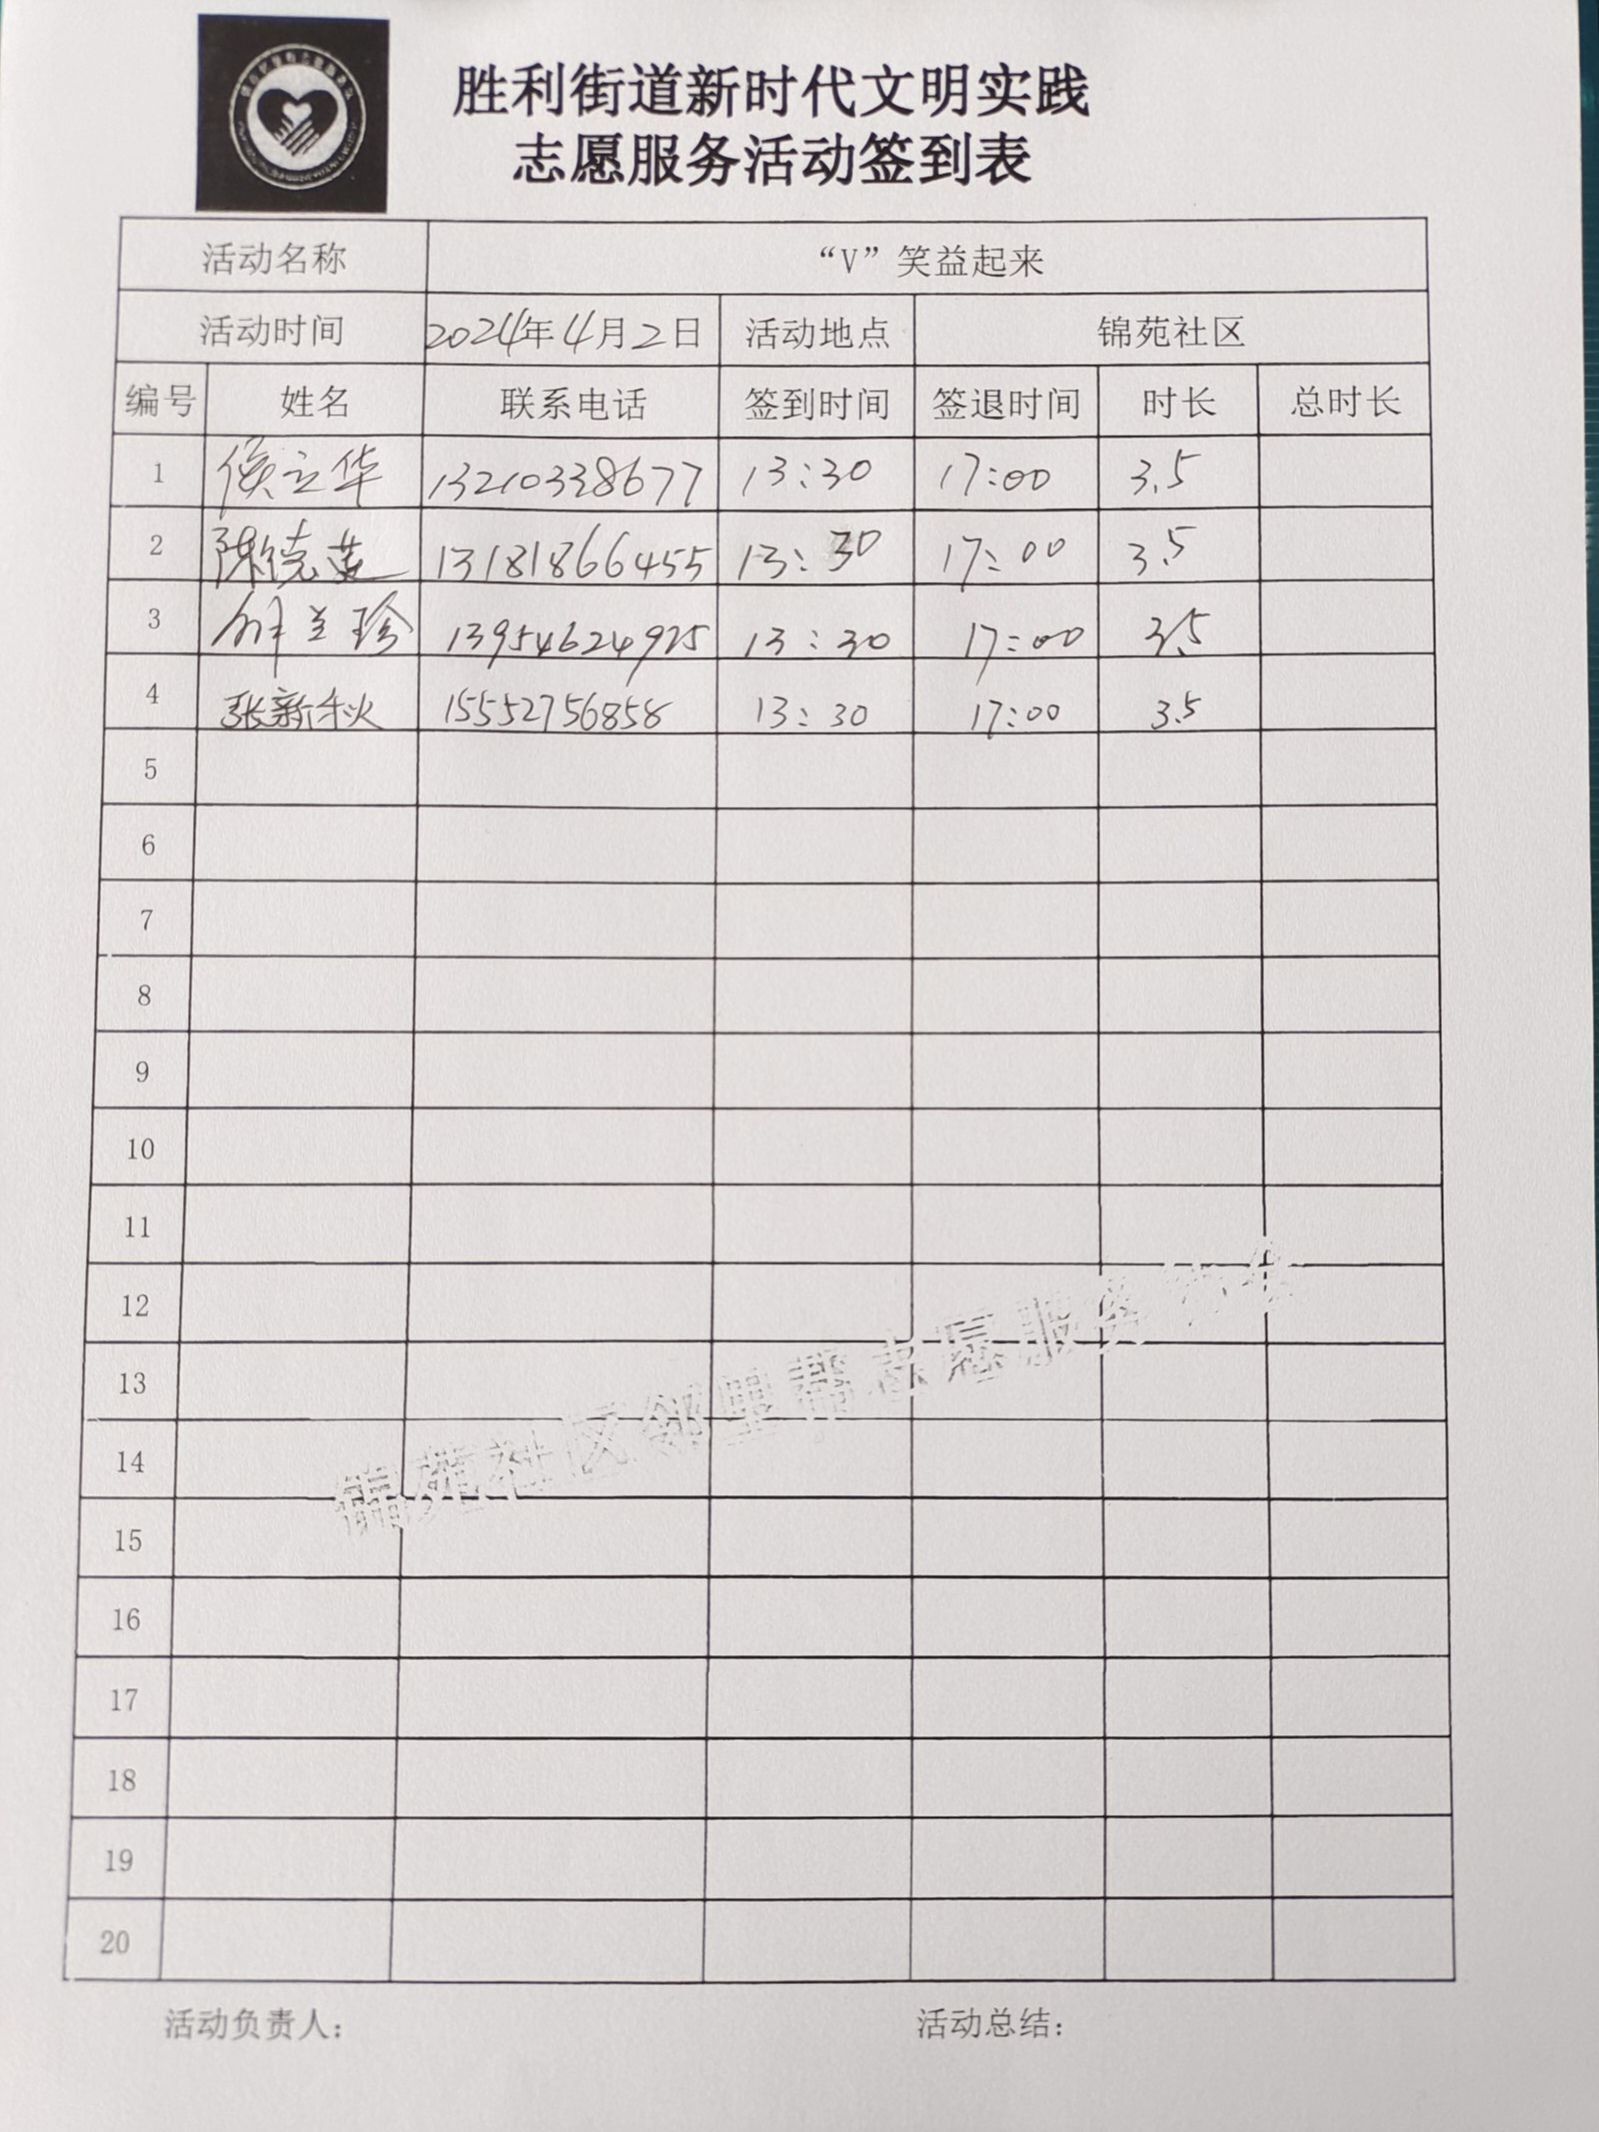 胜利街道新时代文明实践
志愿服务活动签到表
活动名称 “V”笑益起来
活动时间 2024年4月2日 活动地点 锦苑社区
编号 姓名 联系电话 签到时间 签退时间 时长 总时长
1 侯立华 13210338677 13:30 17:00 3.5
2 陈德英 13181866455 13:30 17:00 3.5
3 解兰珍 13954624925 13:30 17:00 3.5
4 张新秋 15552756858 13:30 17:00 3.5
5
6
7
8
9
10
11
12
13
14
15
16
17
18
19
20
锦苑社区邻里帮志愿服务协会
活动负责人: 活动总结: